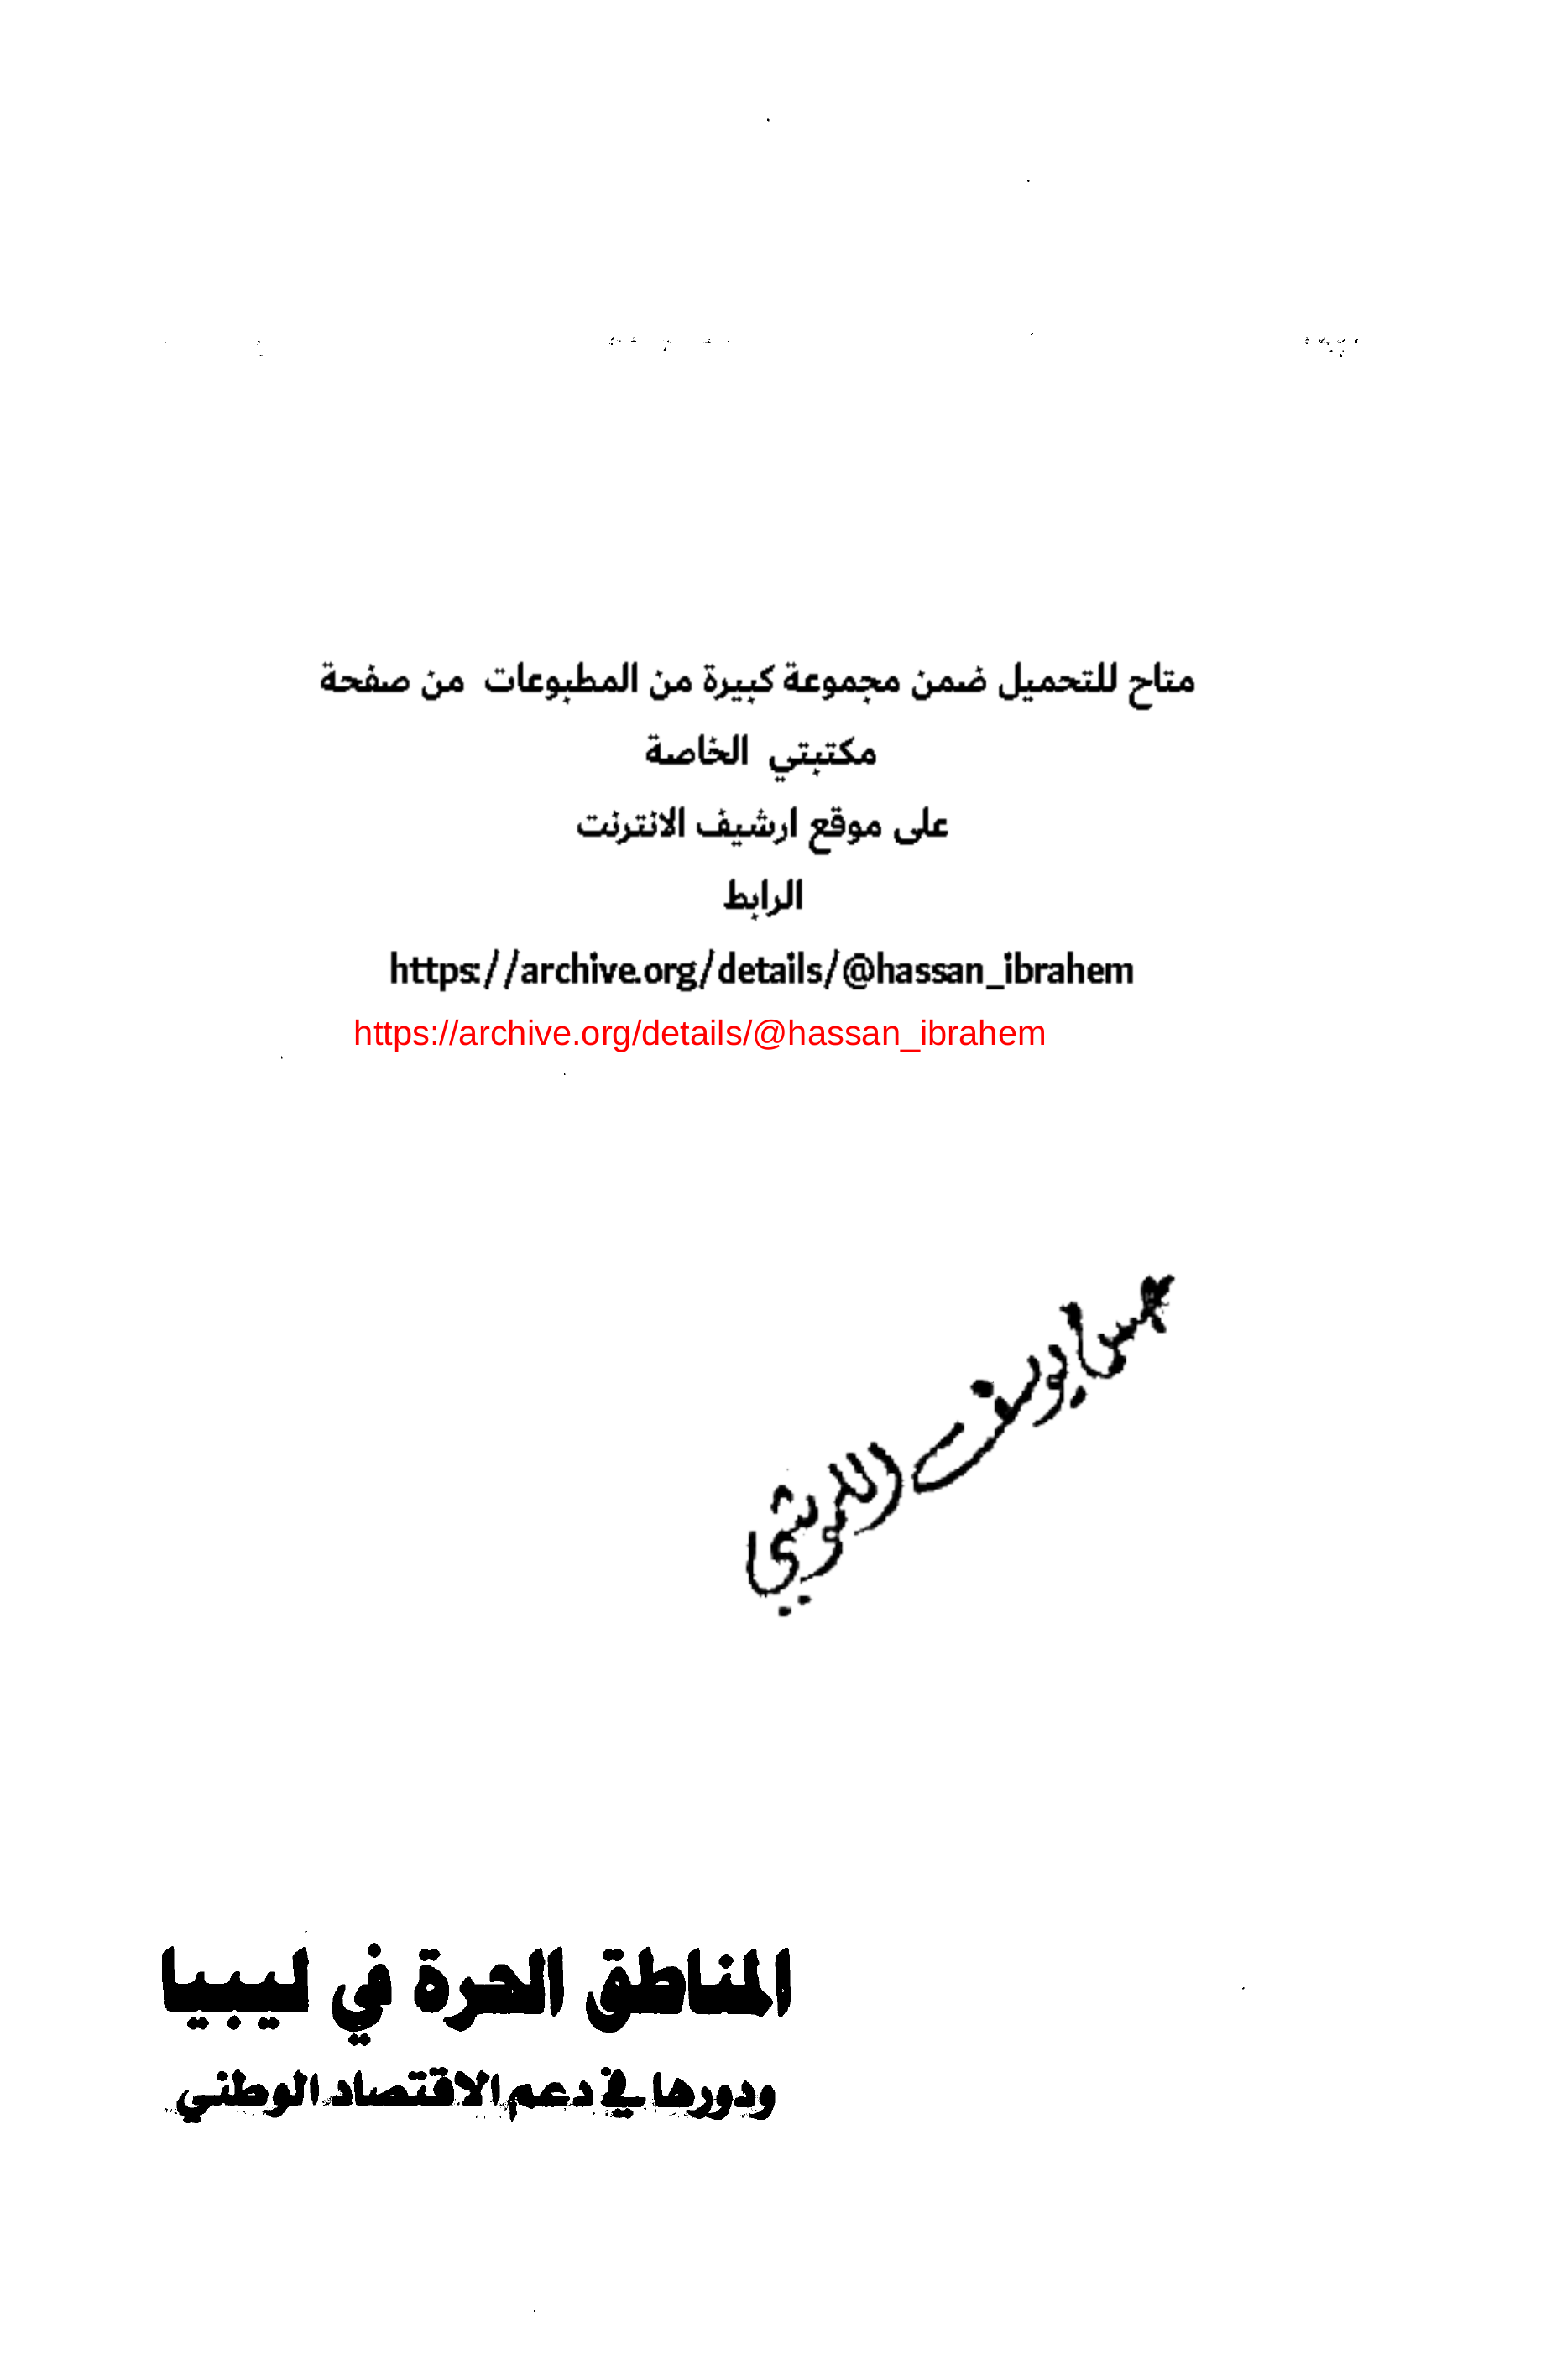 متاح للتحميل ضمن مجموعة كبيرة من المطبوعات من صفحة
مكتبتي الخاصة
على موقع ارشيف الانترنت
الرابط
https://archive.org/details/@hassan_ibrahem
https://archive.org/details/@hassan_ibrahem
يوسف
المناطق الحرة في ليبيا
ودورها في دعم الاقتصاد الوطني